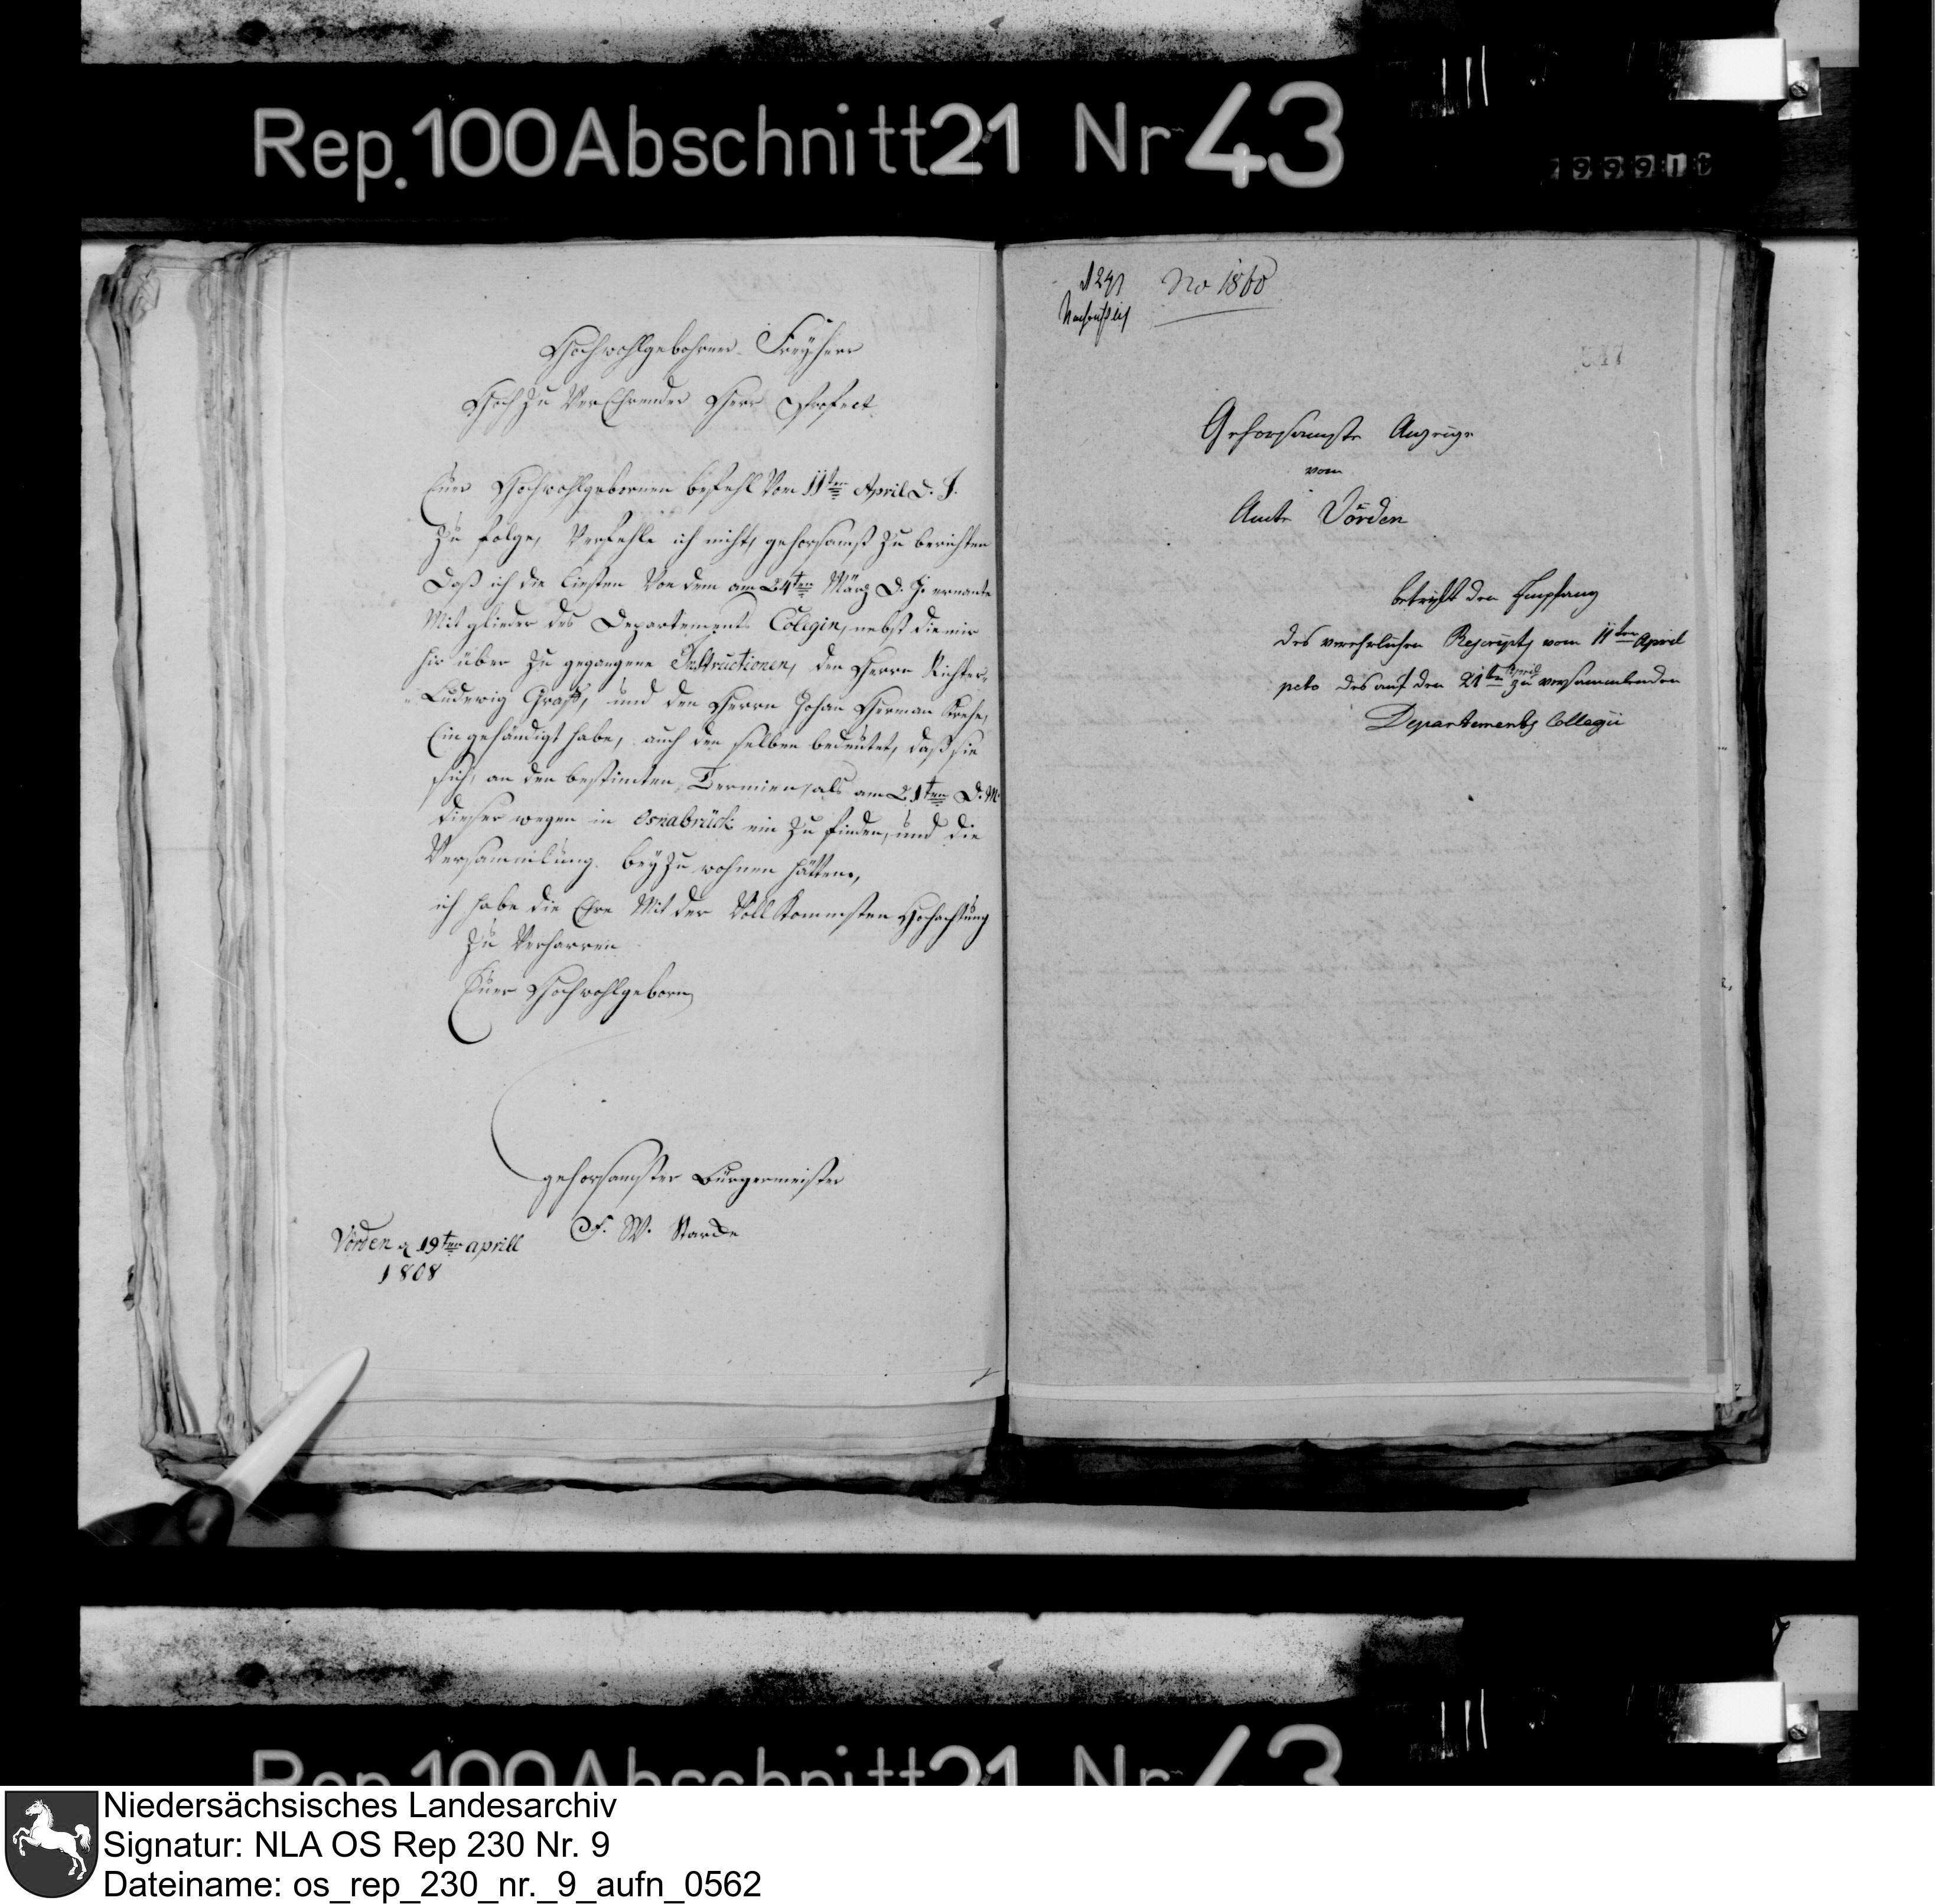 Rep. 100 Abschnitt 21 Nr 43
Hochwohlgebohrner Freyherr
Hoch zu VerEhrender Herr Praefect
Euer Hochwohlgebornen befehl Von 11ten April d. J.
zu folge, Verfehle ich nicht, gehorsamst zu berichten
Daß ich die Liesten Von dem am 24ten März d. J. ernante
Mit glieder des Departements Colegin, nebst die mir
hir über zu gegangene Instructionen, den Herrn Richter
Ludewig Graff, und den Herrn Johan Herman
Ein gehändigt habe, auch den selben bedeutet, daß sie
sich, an den bestimten Termien, als am 21ten d. M.
dieser wegen in Osnabrück ein zu finden, und die
Versammlung bey zu wohnen hätten,
ich habe die Ehre Mit der Voll Kommsten Hochachtung
zu Verharren
Euer Hochwohlgeborn
gehorsamster Bürgermeister
F. W. Starcke
Vörden d 19ten aprill
1808
No 1860
547
Gehorsamste Anzeige
vom
Amte Vörden
betrifft den Empfang
des verehrlichen Rescripts vom 11ten April
pcto des auf den 21ten April zu versammlenden
Departements Collegii
Rep. 100 Abschnitt 21 Nr 43
Niedersächsisches Landesarchiv
Signatur: NLA OS Rep 230 Nr. 9
Dateiname: os_rep_230_nr._9_aufn_0562